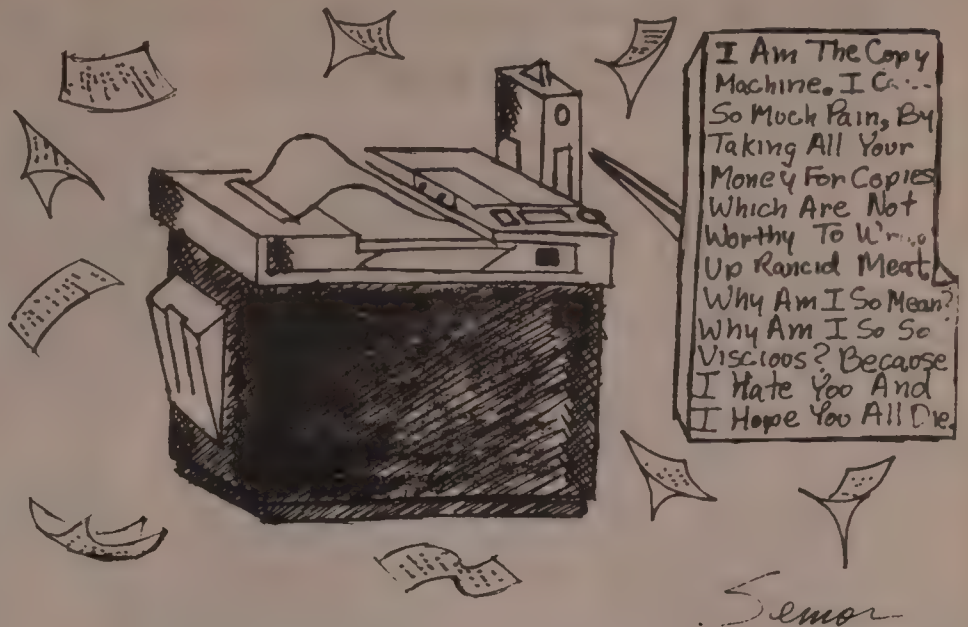 I Am The Copy
Machine. I
So Much Pain, By
Taking All Your
Money For Copies
Which Are Not
Worthy To
Up Rancid Meat
Why Am I So Mean?
Why Am I So So
Viscious? Because
I Hate You And
I Hope You All Die.
Semor